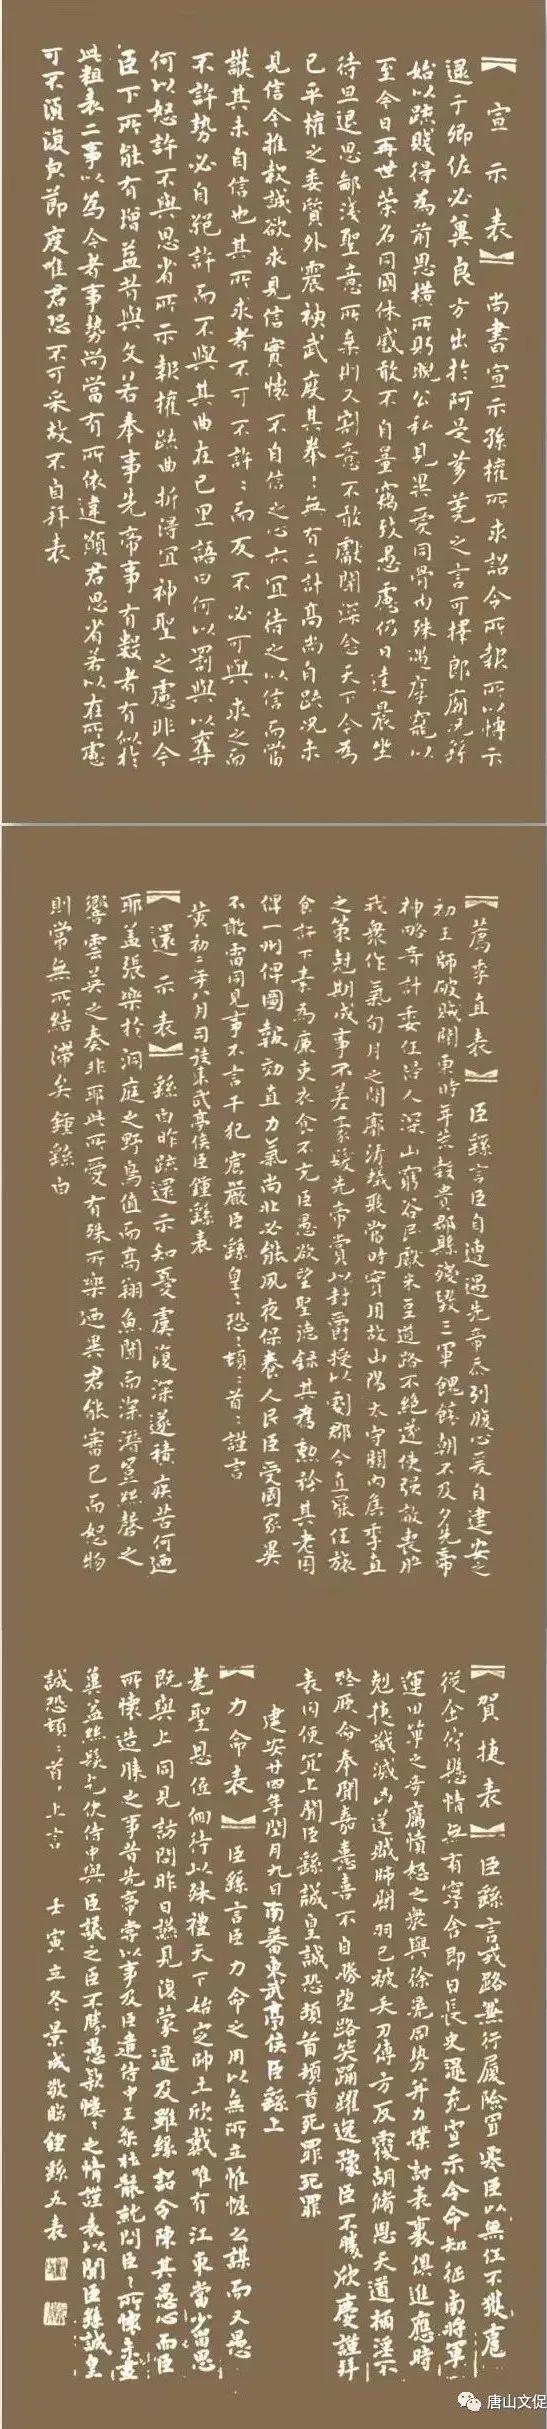 【宣示表】尚書宣示孫權所求詔令所報所以博示
逮于卿佐必冀良方出於阿是芻蕘之言可擇郎廟況繇
始以疏賤得為前恩橫所盼睨公私見異愛同骨肉殊遇厚寵以
至今日再世榮名同國休慼敢不自量竊致愚慮仍日達晨坐
待旦退思鄙淺聖意所棄則又割意不敢獻聞深念天下今為
已平權之委質外震神武度其拳〻無有二計高尚自疏況未
見信今推款誠欲求見信實懷不自信之心亦宜待之以信而當
護其未自信也其所求者不可不許〻而反不必可與求之而
不許勢必自絕許而不與其曲在己里語曰何以罰與以奪
何以怒許不與思省所示報權疏曲折得宜神聖之慮非今
臣下所能有增益昔與文若奉事先帝事有數者有似於
此粗表二事以為今者事勢尚當有所依違願君思省若以在所慮
可不須復皃節度唯君恐不可采故不自拜表
【薦季直表】臣繇言臣自遭遇先帝忝列腹心爰自建安之
初王師破賊關東時年荒穀貴郡縣殘毀三軍餽饟朝不及夕先帝
神略奇計委任得人深山窮谷民獻米豆道路不絕遂使強敵喪膽
我眾作氣旬月之間廓清蟻聚當時實用故山陽太守關內侯季直
之策剋期成事不差豪髮先帝賞以封爵授以劇郡今直罷任旅
食許下素為廉吏衣食不充臣愚欲望聖德錄其舊勳矜其老困
俾一州俾圖報効直力氣尚壯必能夙夜保養人民臣受國家異
不敢雷同見事不言干犯宸嚴臣繇皇〻恐〻頓〻首〻謹言
黃初二年八月司徒東武亭侯臣鍾繇表
【還示表】繇白昨疏還示知憂虞復深遂積疾苦何迺
耶蓋張樂於洞庭之野鳥值而高翔魚聞而深潛豈絲磬之
響雲英之奏非耶此所愛有殊所樂迺異君能審己而恕物
則常無所結滯矣鍾繇白
【賀捷表】臣繇言戎路兼行履險冒寒臣以無任不獲扈
從企佇懸情無有寧舍即日長史逯充宣示令命知征南將軍
運田單之奇厲憤怒之眾與徐晃同勢并力撲討表裏俱進應時
剋捷馘滅凶逆賊帥關羽已被矢刃傅方反覆胡脩背恩天道禍淫不
終厥命奉聞嘉憙喜不自勝望路笑踊躍逸豫臣不勝欣慶謹拜
表因便宜上聞臣繇誠皇誠恐頓首頓首死罪死罪
建安廿四年閏月九日南蕃東武亭侯臣繇上
【力命表】臣繇言臣力命之用以無所立惟幄之謀而又愚
耄聖恩低徊待以殊禮天下始定師土欣戴唯有江東當少留思
既與上同見訪問昨日讌見復蒙逮及雖緣詔令陳其愚心而臣
所懷造膝之事昔先帝嘗以事及臣遣侍中王粲杜襲就問臣〻所懷未盡
冀益絲髮乞使侍中與臣議之臣不勝愚款慺〻之情謹表以聞臣繇誠皇
誠恐頓〻首〻上言 壬寅立冬景成敬臨鍾繇五表
唐山文促